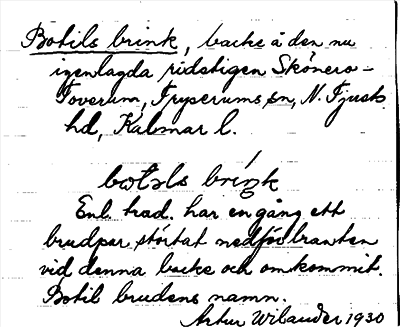 Botils brink, backe å den nu
igenlagda ridstigen Skönero-
Toverum, Fryserums sn, N. Tjusts
hd, Kalmar l.
botəls briŋk
Enl. trad. har en gång ett
brudpar störtat nedför branten
vid denna backe och omkommit.
Botil brudens namn.
Artur Wilander 1930